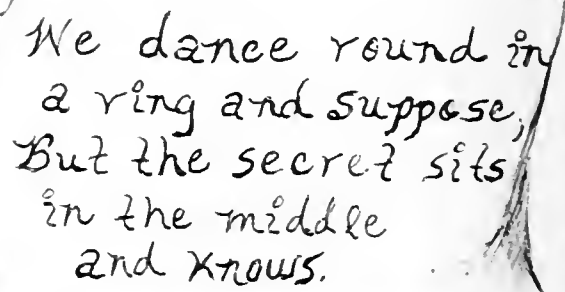 We dance round in
a ring and suppose,
But the secret sits
in the middle
and knows.